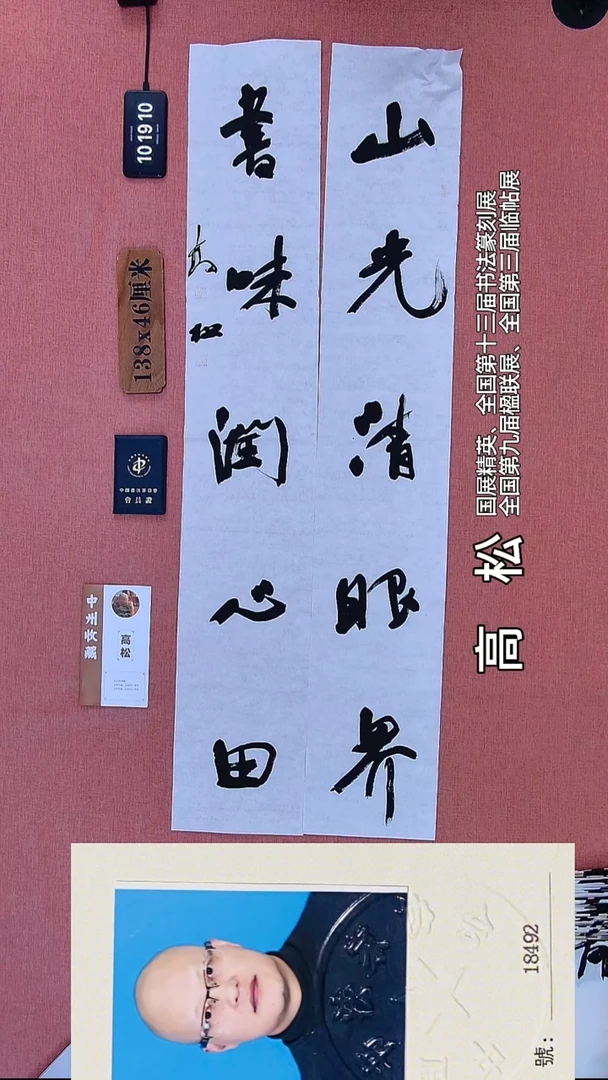 山光清眼界
書味潤心田
高松
高 松
国展精英、全国第十三届书法篆刻展
全国第九届楹联展、全国第三届临帖展
10 19 10
138x46厘米
會員證
高松
號：
18492